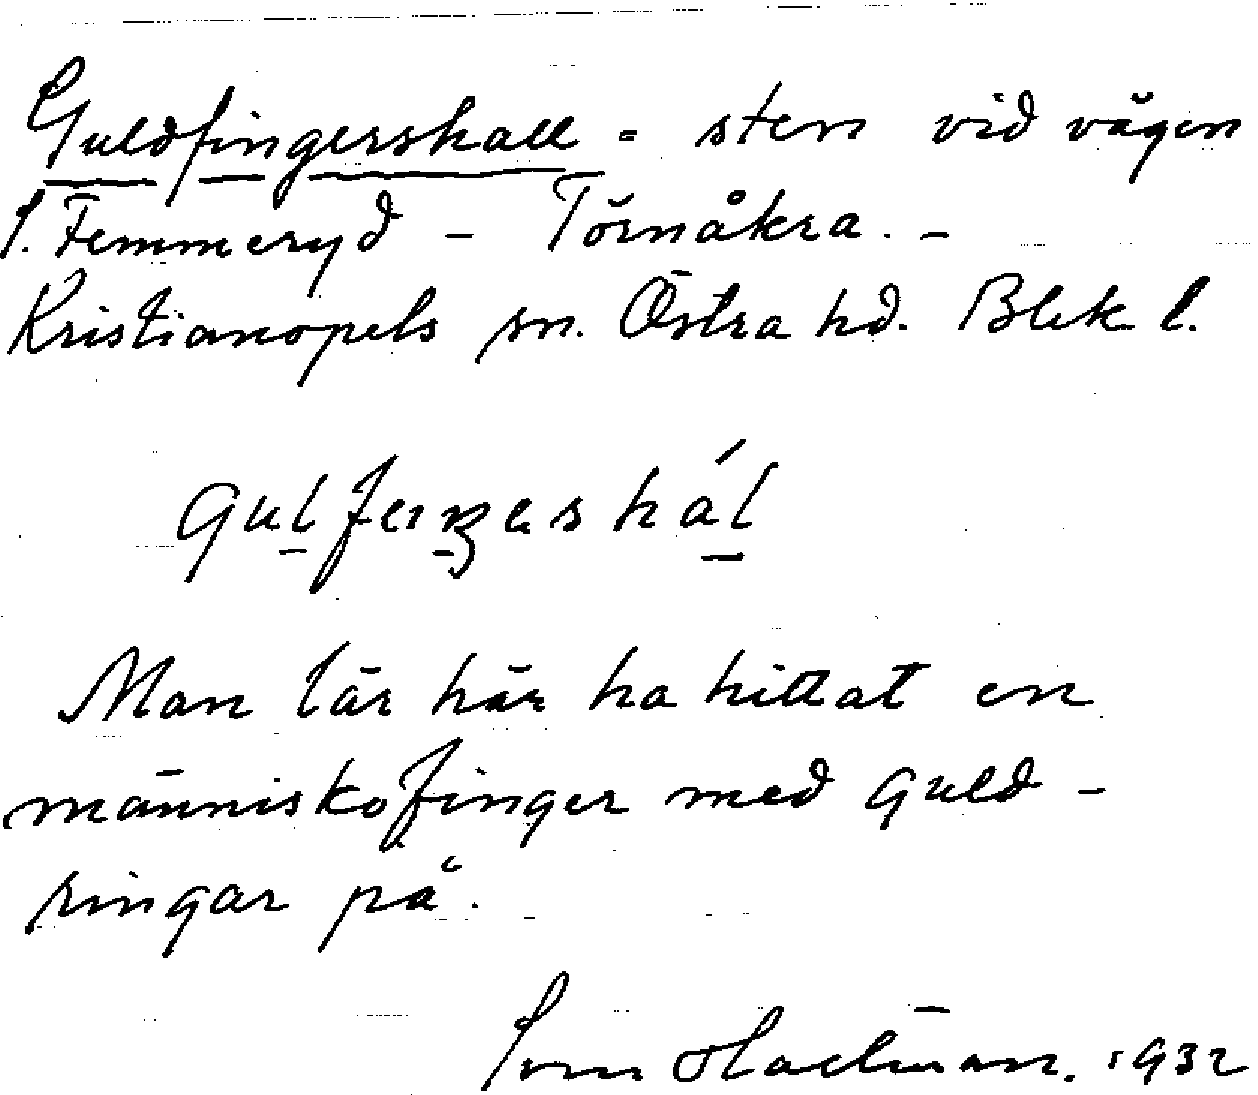 Guldfingershall = sten vid vägen
S. Femmeryd - Törnåkra. -
Kristianopels sn. Östra hd. Blek l.
Man lär här ha hittat en
människofinger med guld-
ringar på.
1932